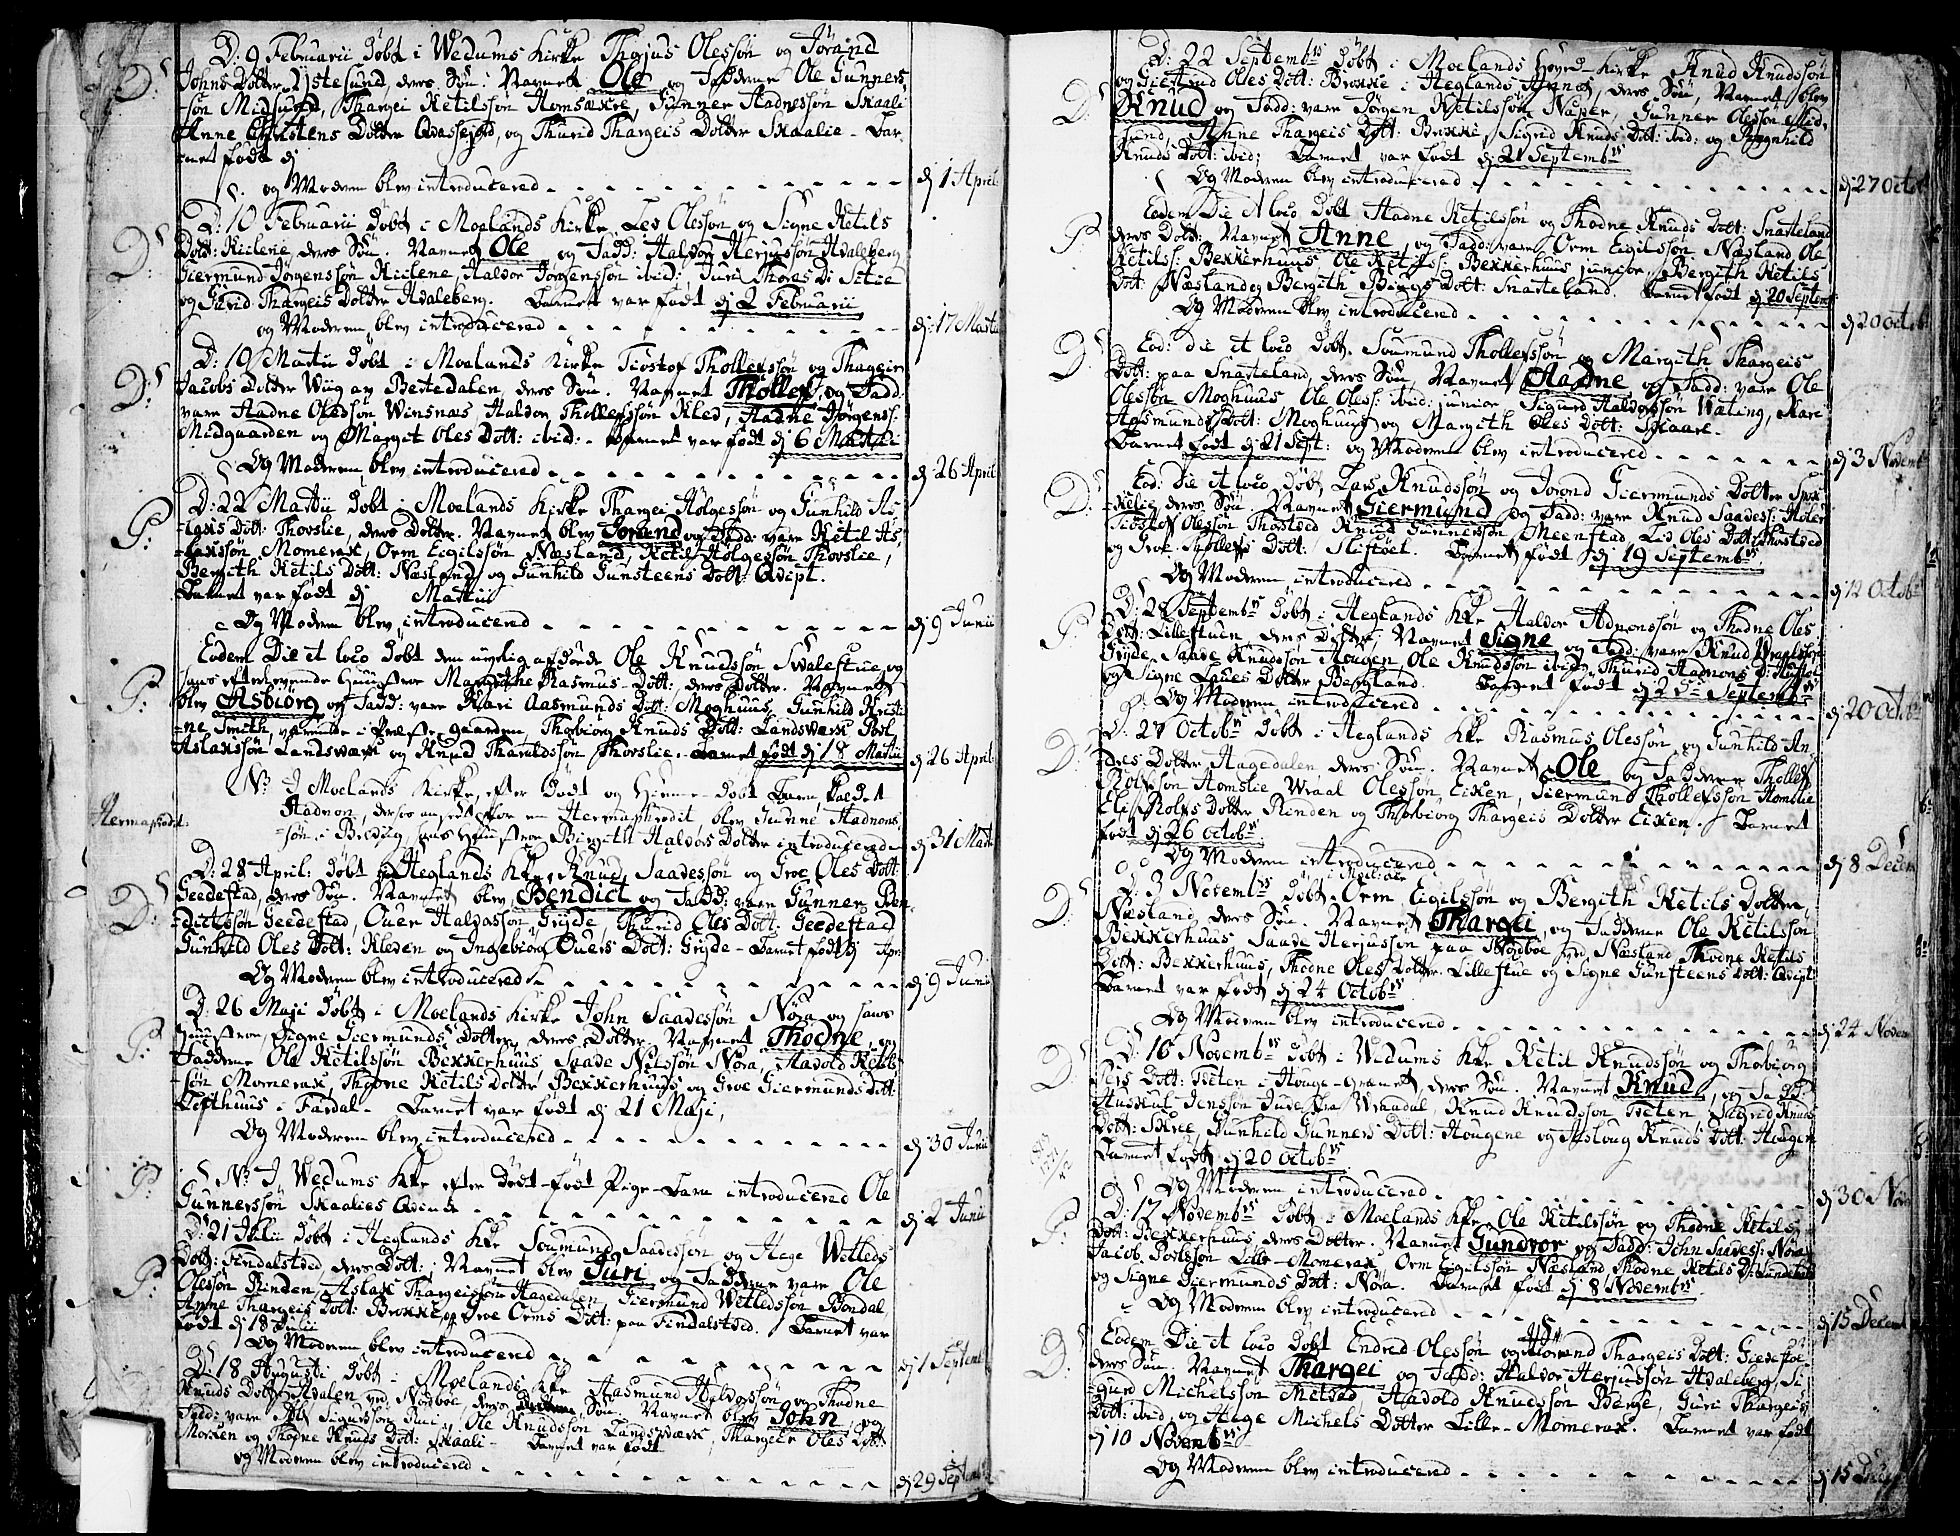 D: 9 Februarii Døbt i Wedums Kirke Thorjus Olessøn og Jørand
Johns Dotter Ystesund deres Søn. Navnet Ole og Fadderne Ole Gunners-
D:
søn Midsund, Thargei Ketilssøn Homsække, Gunner Aadnessøn Skaali
Anne Christens Dotter Qvassejord, og Thurid Thargeis Dotter Skaalie - Bar-
net født dj
og Moderen blev introducered - dj 1 April
D: 10 Februarii Døbt i Moelands Kirke Lev Olessøn og Signe Ketils
D:
Dott: Kiilene, deres Søn. Navnet Ole og Fadd: Haldor Herjussøn Hvaleberg
Giermund Jørgenssøn Kiilene, Haldor Jørgenssøn ibid: Juri Thores D:
og Gurid Thargeis Dotter Hvaleberg. Barnet var født dj 2 Februarii
og Moderen blev introducered - dj 17 Martii
D: 19 Martii Døbt i Moelands Kirke Tiostof Thollefssøn og Thargeir
D:
Jacobs Dotter Wiig av Bestedalen, deres Søn. Navnet Thollef, og Fadd:
vare Aadne Olessøn Winsnæs, Haldor Thollefssøn Klev, Aadne Jørgenss:
Midgaarden og Margit Oles Dott: ibid: - Barnet var født dj 6 Martii
Og Moderen blev introducered - dj 26 April
D: 22 Martii Døbt i Moelands Kirke Thargei Holgessøn og Gunhild As-
P:
laxis Dott: Thovslie, deres Dotter. Navnet blev Jorand og Fadd: vare Ketil As-
laxssøn Momerak, Orm Eigilssøn Næsland, Ketil Holgessøn Thovslie,
Bergith Ketils Dott: Næsland og Gunhild Gunsteens Dott: Qvipt.
Barnet var født dj Martii
Og Modern blev introducered - dj 9 Junii
Eodem Die et loco Døbt den nyelig afdøde Ole Knudssøn Svalestue, og
P:
hans efterlevende Huustroe Margithe Rasmus-Dott:, deres Dotter. Navnet
blev Asbiørg og Fadd: vare Kari Aasmunds Dott: Moghuus, Gunhild Kristi-
ne Smith, værende i Præste gaarden, Thorbiørg Knuds Dott: Landsværk
Aslakssøn Landsværk og Knud Tharaldssøn Thovslie. Barnet født dj 18 Martii - dj 26 April
NB: I Moelands Kirke, efter Død og Hiemme-døbt Barn, kaldet
Hermaphrodit:
Aadnon, dersom anseet for en Hermaphrodit, blev Gunne Aadnons-
søn i Breivig hans Huustroe Birgith Haldors Dotter introducered - dj 31 Martii
D: 28 April: Døbt i Heglands Kke Knud Saavessøn og Groe Oles Dott:
D:
Geedestad, deres Søn. Navnet blev Bendict og Fadd: vare Gunner Ben-
dictssøn Geedestad, Ouer Haldossøn Gryde, Thurid Oles Dott: Geedestad
Gunhild Oles Dott: Kleven og Ingebiørg Ouers Dott: Gryde - Barnet født dj Apr:
Og Moderen blev introducered - dj 9 Junii
D: 26 Maji Døbt i Moelands Kirke John Saavessøn Nøra og hans
P:
Huustroe Signe Giermunds Dotter, deres Dotter. Navnet Thodne, og
Fadderne Ole Ketilssøn Bekkerhuus, Saave Nilssøn Nøra, Aavold Ketils-
søn Momerak, Thodne Ketils Dotter Bekkerhuus og Groe Giermunds Dott:
Lofthuus i Fardal - Barnet var født dj 21 Maji,
Og Moderen blev introducered - dj 30 Junii
P:
NB: I Wedums Kke efter Død-født Pige-Barn introducered Ole
Gunnerssøn Skaalies Qvinde - dj 2 Junii
D: 21 Julii Døbt i Heglands Kke Soumund Saavessøn og Hege Wetleds
P:
Dott: Findalstved, deres Dott: Navnet blev Juri og Fadderne vare Ole
Olessøn Rinden, Aslak Thargeissøn Hagedalen, Giermund Wetledssøn Bondal
Anne Thargeis Dott: Brokke, og Groe Orms Dott: paa Findalstved. Barnet var
født dj 18 Julii
Og Moderen blev introducered - dj 1 Septemb
D: 18 Augusti Døbt i Moelands Kke Aasmund Haldorssøn og Thodne
Knuds Dott: Hvalen ved Nordboe, deres Søn. Navnet blev John, og
Fadd: vare Sigurssøn Ole Knudssøn Landsværk, Thargeir Oles Dott:
Moreen og Thodne Knuds Dott: Skaali - Barnet var født
og Moderen blev introducered - dj 29 Septemb
D: 22 Septembris Døbt i Moelands Hoved-Kirke Knud Knudssøn
D:
og Giertrud Oles Dott: Brokke i Heglands Annex, deres Søn, Navnet blev
Knud og Fadd: vare Jørgen Ketilssøn Naper, Gunner Olessøn Mid-
sund, Anne Thargeis Dott: Brokke, Sigrid Knuds Dott: ibid: og Ragnhild
Knuds Dott: ibid; Barnet var født dj 21 Septembris
Og Moderen blev introducered - dj 27 Octob
Eodem Die et loco Døbt Aadne Ketilssøn og Thodne Knuds Dott: Snarteland
P:
deres Dott: Navnet Anne, og Fadd: vare Orm Eigilssøn Næsland Ole
Ketilss: Bekkerhuus Ole Ketilss: Bekkerhuus junior, Bergith Ketils
Dott: Næsland og Bergith Biugs Dott: Snarteland. Barnet født dj 20 Septemb
Og Moderen blev introducered - dj 20 Octob
Eod: die et loco Døbt Soumund Thollefssøn og Margith Thargeis
D:
Dott: paa Snarteland, deres Søn, Navnet Aadne og Fadd: vare Ole
Olessøn Moghuus Ole Oless: ibid: junior Sigurd Haldorssøn Wating, Kari
Aasmunds Dott: Moghuus og Margith Oles Dott: Skaare.
Barnet født dj 21 Sept: og Moderen blev introducered - dj 3 Novemb
Eod: Die et loco Døbt Lars Knudssøn og Jorond Giermunds Dotter
D:
kelie, deres Søn Navnet Giermund og Fadd: vare Knud Saavess:
Tiostof Olessøn Thorstved Knud Gunnerssøn Meenstad, Liv Oles Dott: Thorstved
og Groe Thollefs Dott: Sliftøel. Barnet født dj 19 Septembris
Og Moderen introducered - dj 12 Octob
D: 28 Septembris Døbt i Heglands Kke Haldor Adnenssøn og Thodne Oles
P:
Dott: Lillestuen, deres Dotter, Navnet Signe og Fadd: vare Knud
Gryde, Saave Knudssøn Hougen, Ole Knudssøn ibid: Thurid Aadnons D:
og Signe Laues Dotter Bergland. Barnet født dj 25 Septembris
Og Moderen introducered - dj 20 Octob
D: 27 Octobris Døbt i Heglands Kke Rasmus Olessøn og Gunhild An-
D:
dres Dotter Hagedalen deres Søn. Navnet Ole og Fadderne Thollef
Rolfssøn Homslie Wraal Olessøn Eiken, Giermund Thollefssøn Homslie
Elis Rolfs Dotter Rinden og Thorbiørg Thargeis Dotter Eiken. Barnet
født dj 26 Octobris
Og Moderen introducered - dj 8 Decem
i Moeland
D: 3 Novembris Døbt Orm Eigilssøn og Bergith Ketils Dotter
D:
Næsland, deres Søn. Navnet Thargei, og Fadderne Ole Ketilssøn
Bekkerhuus Saave Herjussøn paa Nordboe ved Næsland Thodne Ketils
Dott: Bekkerhuus, Thodne Oles Dotter Lillestue og Signe Gunsteens Dott: Qvipt
Barnet var født dj 24 Octobris
Og Moderen blev introducered - dj 24 Novem
D: 16 Novembris Døbt i Wedums Kke Ketil Knudssøn og Thorbiørg
D:
Pers Dott: Tveten i Houge-Grænd, deres Søn Navnet Knud, og Fadd:
Huskul Jenssøn Jude fra Wraadal, Knud Knudssøn Tveten, Sigrid Knuds
Dott: Skree, Gunhild Gunners Dott: Hougene og Aasloug Knuds Dott: Hougen
Barnet født dj 20 Octobris
Og Moderen blev introducered - dj 30 Nov
D: 17 Novembris Døbt i Moelands Kke Ole Ketilssøn og Thodne Ketils
P:
Dott: Bekkerhuus, deres Dotter. Navnet Gundror og Fadd: John Saavess: Nøra
Jacob Poulssøn Lille-Momerak, Orm Eigilssøn Næsland Thodne Ketils D:
og Signe Giermunds Dott: Nøra. Barnet født dj 8 Novembris
Og Moderen blev introducered - dj 15 Decem
Eodem Die et loco Døbt Endred Olessøn og Jorand Thargeis Dott:
D:
deres Søn. Navnet Thargei og Fadd: Haldor Herjussøn Hvaleberg, Si-
gurd Michelssøn Metved, Aavold Knudssøn Berge, Guri Thargeis
Dott: ibid, og Hæge Michels Dotter Lille-Momerak. Barnet var født
dj 10 Novembris
Og Moderen blev introducered - dj 15 Decem